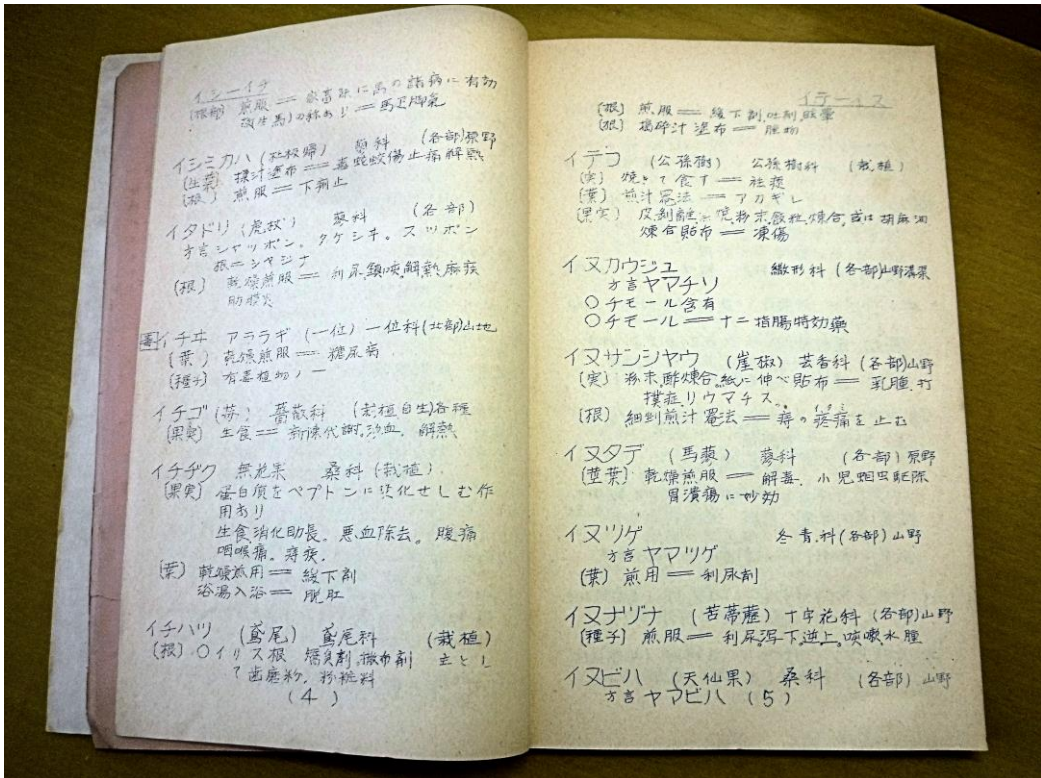 イシーイチ
煎服＝家畜殊に馬の諸病に有効
の称あり＝馬疋脚氣
イシミカハ 蓼科 (各部)原野
(生葉) 搾汁塗布＝毒蛇蛟傷止痛解熱
(根) 煎服＝下痢止
イタドリ (虎杖) 蓼科 (各部)
方言シャッポン。タケシキ。スッポン
根＝シヤジナ
(根) 乾燥煎服＝利尿鎮咳解熱麻疾
肋膜炎
イチヰ アララギ (一位) 一位科(北部)山地
(葉) 乾燥煎服＝糖尿病
(種子) 有毒植物ノ一
イチゴ (苺) 薔薇科 (栽植自生)各種
(果実) 生食＝新陳代謝。浄血。解熱
イチヂク 無花果 桑科(栽植)
(果実) 蛋白質をペプトンに消化せしむ作
用あり
生食消化助長。悪血除去。腹痛
咽喉痛。痔疾。
(葉) 乾燥煎用＝緩下剤
浴湯入浴＝脱肛
イチハツ (鳶尾) 鳶尾科 (栽植)
(根) ○イリス根 矯臭剤、撒布剤 主とし
て歯磨粉、粉粧料
(4)
イチーイヌ
(根) 煎服＝緩下剤、吐剤
(根) 搗砕汁塗布＝腫物
イテフ (公孫樹) 公孫樹科 (栽植)
(実) 焼きて食す＝祛痰
(葉) 煎汁罨法＝アカギレ
(果実) 皮剥離シ 焼粉末、飯粒煉合、或は胡麻油
煉合貼布＝凍傷
イヌカウジュ 繖形科 (各部)山野溝渠
方言ヤマチソ
○チモール含有
○チモール＝十二指腸特効藥
イヌサンシヤウ (崖椒) 芸香科 (各部)山野
(実) 粉末、酢煉合。紙に伸べ貼布＝乳腫、打
撲症、リウマチス。
(根) 細剉煎汁罨法＝痔の疼痛を止む
イヌタデ (馬蓼) 蓼科 (各部)原野
(茎葉) 乾燥煎服＝解毒、小児蛔虫駆除
胃潰瘍に妙効
イヌツゲ 冬青科(各部)山野
方言ヤマツゲ
(葉) 煎用＝利尿剤
イヌナヅナ (苦葶藶) 十字花科 (各部)山野
(種子) 煎服＝利尿、瀉下、逆上。咳嗽、水腫
イヌビハ (天仙果) 桑科 (各部)山野
方言ヤマビハ (5)